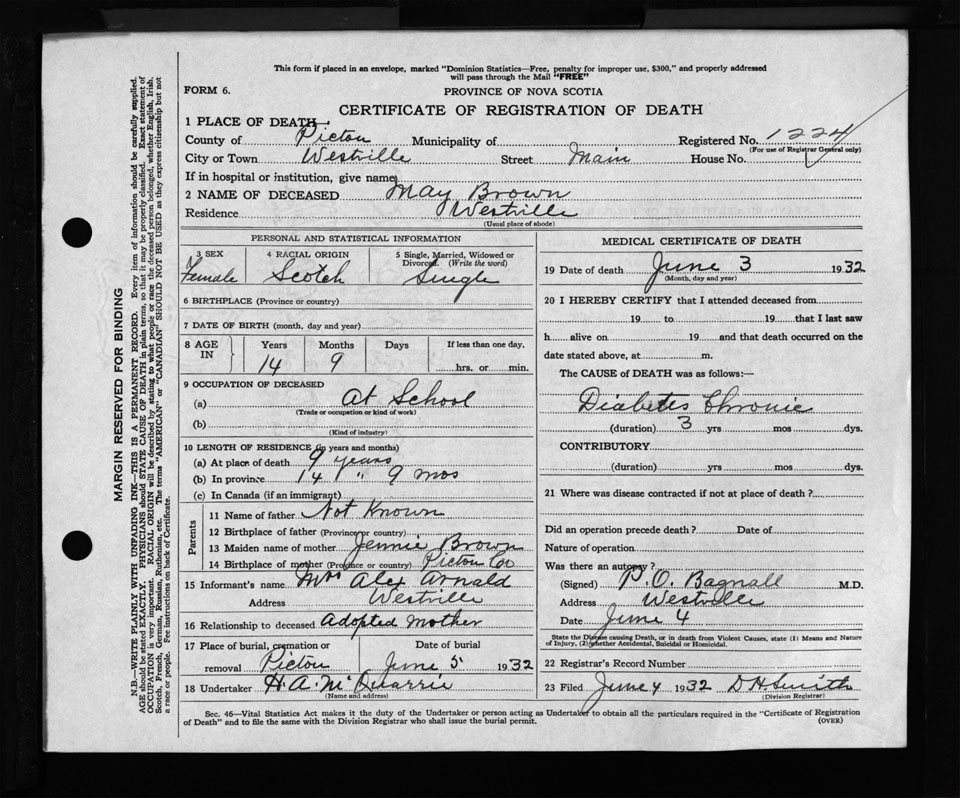 This form if placed in an envelope, marked "Dominion Statistics—Free, penalty for improper use, $300," and properly addressed
will pass through the Mail "FREE"
FORM 6.
PROVINCE OF NOVA SCOTIA
CERTIFICATE OF REGISTRATION OF DEATH
1 PLACE OF DEATH
County of Pictou Municipality of Registered No. 1224
(For use of Registrar General only)
City or Town Westville Street Main House No.
If in hospital or institution, give name
2 NAME OF DECEASED May Brown
Residence Westville
(Usual place of abode)
PERSONAL AND STATISTICAL INFORMATION
3 SEX 4 RACIAL ORIGIN 5 Single, Married, Widowed or
Divorced. (Write the word)
Female Scotch Single
6 BIRTHPLACE (Province or country)
7 DATE OF BIRTH (month, day and year)
8 AGE IN Years Months Days If less than one day,
14 9 hrs. or min.
9 OCCUPATION OF DECEASED
(a) At School
(Trade or occupation or kind of work)
(b)
(Kind of industry)
10 LENGTH OF RESIDENCE (in years and months)
(a) At place of death 9 years
(b) In province 14 " 9 mos
(c) In Canada (if an immigrant)
Parents
11 Name of father Not Known
12 Birthplace of father (Province or country)
13 Maiden name of mother Jennie Brown
14 Birthplace of mother (Province or country) Pictou Co
15 Informant's name Mrs Alex Arnald
Address Westville
16 Relationship to deceased Adopted Mother
17 Place of burial, cremation or Date of burial
removal Pictou June 5 1932
18 Undertaker H. A. McQuarrie
(Name and address)
MEDICAL CERTIFICATE OF DEATH
19 Date of death June 3 1932
(Month, day and year)
20 I HEREBY CERTIFY that I attended deceased from
19 to 19 that I last saw
h alive on 19 and that death occurred on the
date stated above, at m.
The CAUSE of DEATH was as follows:—
Diabetes Chronic
(duration) 3 yrs mos dys.
CONTRIBUTORY
(duration) yrs mos dys.
21 Where was disease contracted if not at place of death?
Did an operation precede death? Date of
Nature of operation
Was there an autopsy?
(Signed) P. O. Bagnall M.D.
Address Westville
Date June 4
State the Disease causing Death, or in death from Violent Causes, state (1) Means and Nature
of Injury, (2) whether Accidental, Suicidal or Homicidal.
22 Registrar's Record Number
23 Filed June 4 1932 D H Smith
(Division Registrar)
Sec. 46—Vital Statistics Act makes it the duty of the Undertaker or person acting as Undertaker to obtain all the particulars required in the "Certificate of Registration
of Death" and to file the same with the Division Registrar who shall issue the burial permit.
(OVER)
MARGIN RESERVED FOR BINDING
N.B.—WRITE PLAINLY WITH UNFADING INK—THIS IS A PERMANENT RECORD. Every item of information should be carefully supplied.
AGE should be stated EXACTLY. PHYSICIANS should STATE CAUSE OF DEATH in plain terms, so that it may be properly classified. Exact statement of
OCCUPATION is very important. RACIAL ORIGIN will be described by stating to what people or race the deceased person belonged, whether English, Irish,
Scotch, French, German, Russian, Ruthenian, etc. The terms "AMERICAN" or "CANADIAN" SHOULD NOT BE USED as they express citizenship but not
a race or people. See instructions on back of Certificate.